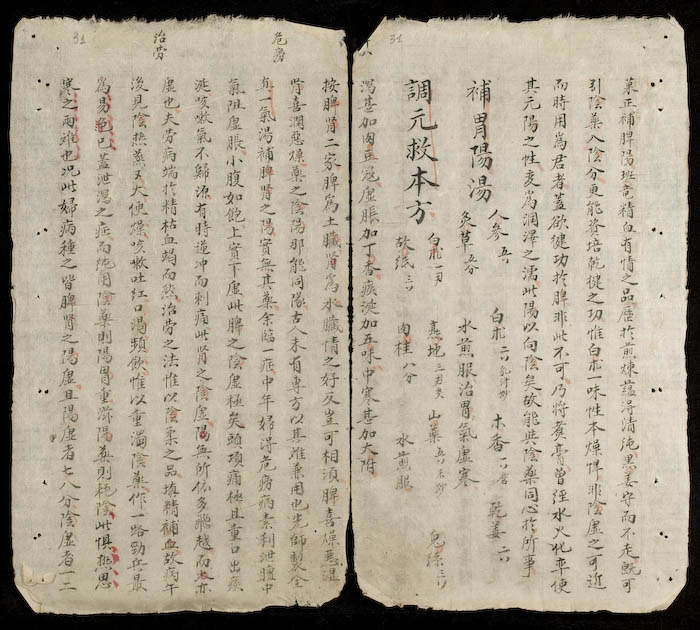 菓正補脾陽班竜精血有情之品歴於煎煉蘊淂清純黒姜守而不走既可
引陰藥入陰分更能资培乾健之功惟白朮一味性本燥悍非陰虚之可近
而時用為君者蓋欲健功於脾非此不可乃将煮膏曾經水火化卒使
其元陽之性变為潤澤之濡此陽以向陰矣故能與陰藥同心於所事
補胃陽湯
人參五𠆤 白朮二𠆤乳汁炒 木香一𠆤 乾姜二𠆤
炙草五分 水煎服治胃氣虚寒
瀉甚加肉豆寇虚脹加丁香痰涎加五味中寒甚加大附
調元救本方
白朮一刃 熟地三刃 山藥五𠆤 兎絲三𠆤
故紙三𠆤 肉桂八分 水煎服
31
31
危劳
治劳
按脾腎二家脾為土臟腎為水臟情之好反岂可相須脾喜燥惡湿
腎喜潤惡燥藥之陰陽那能同隊古人本有專方以其难兼用也先師製全
真一氣湯補脾腎之陽實無其藥余臨一症中年婦淂危病病素利泄臍中
氣阻虚脹小腹如飽上實下虚此脾之陰虚極矣頭項痛極且重口出痰
涎咳嗽氣不歸源有時逆冲而刺痛此腎之陰虚陽無所依多飛越而
虚也夫劳病端於精枯血竭而然治劳之法惟以陰柔之品填精補血故病午
後見陰热蒸又大便燥咳嗽吐红口渴頻飲惟以重濁陰藥作一路勁兵最
為易色巳蓋泄瀉之症而純用陰藥則陽胃重滞陽藥則耗陰此惧热思
寒之両难也况此婦病種之皆脾腎之陽虚且陽虚者七八分陰虚者一二